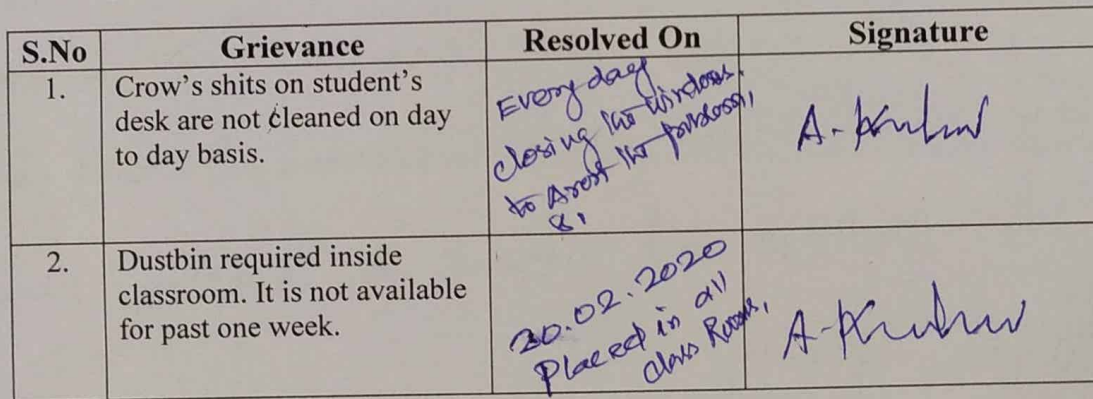 S.No Grievance Resolved On Signature
1.
Crow's shits on student's
desk are not cleaned on day
to day basis.
Every day
closing the windows.
to Arest the problem,
A-
2.
Dustbin required inside
classroom. It is not available
for past one week.
20.02.2020
Placed in all
class Rooms,
A-